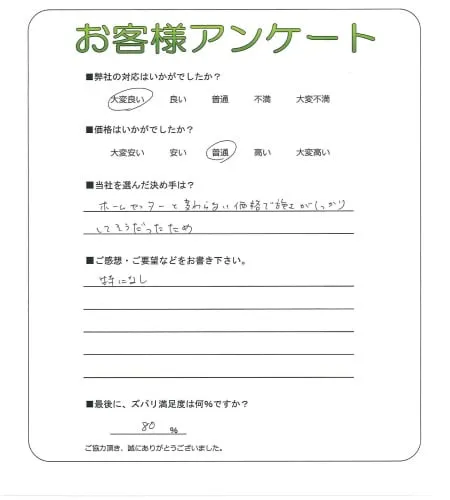 お客様アンケート
■弊社の対応はいかがでしたか？
大変良い 良い 普通 不満 大変不満
■価格はいかがでしたか？
大変安い 安い 普通 高い 大変高い
■当社を選んだ決め手は？
ホームセンターと変わらない価格で施工がしっかり
してそうだったため
■ご感想・ご要望などをお書き下さい。
特になし
■最後に、ズバリ満足度は何％ですか？
80 ％
ご協力頂き、誠にありがとうございました。